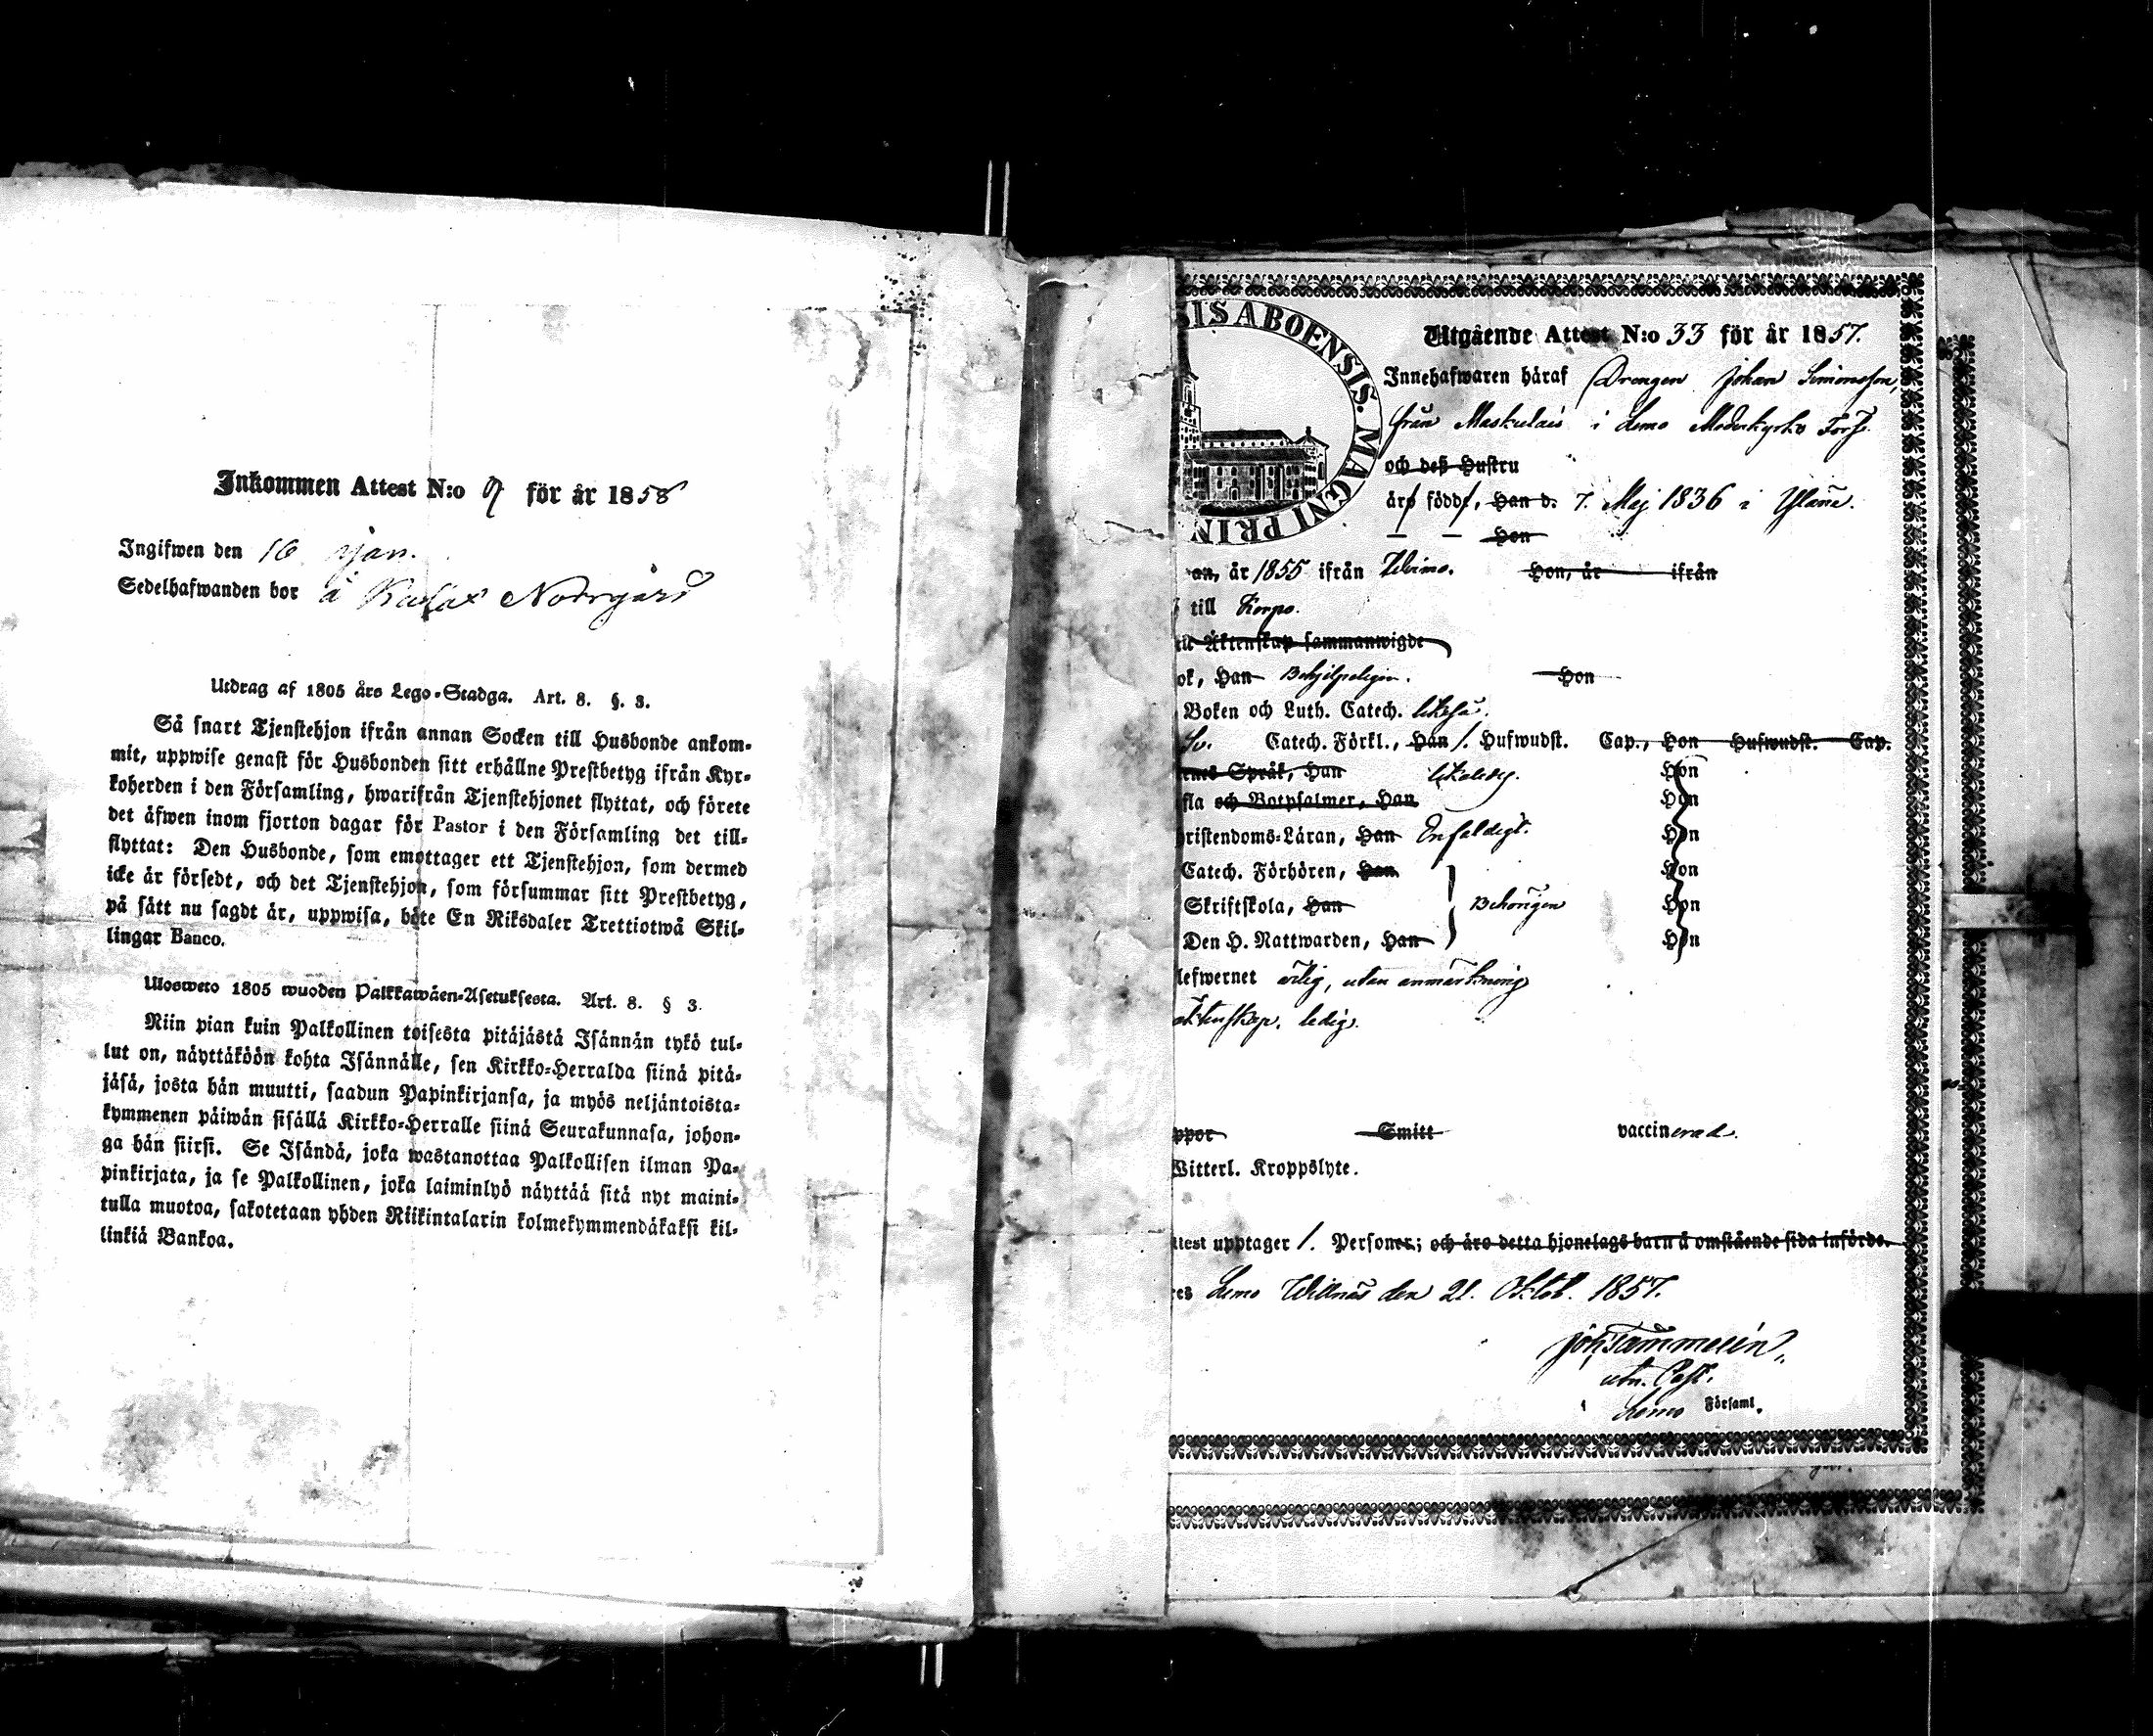 Inkommen Attest N:o 9 för år 1858
Ingifwen den 16 Jan.
Sedelhafwanden bor å Norrgård
Utdrag af 1805 års Lego-Stadga. Art. 8. §. 3.
Så snart Tjenstehjon ifrån annan Socken till Husbonde ankom-
mit, uppwise genast för Husbonden sitt erhållne Prestbetyg ifrån Kyr-
koherden i den Församling, hwarifrån Tjenstehjonet flyttat, och förete
det äfwen inom fjorton dagar för Pastor i den Församling det till-
flyttat: Den Husbonde, som emottager ett Tjenstehjon, som dermed
icke är försedt, och det Tjenstehjon, som försummar sitt Prestbetyg,
på sätt nu sagdt är, uppwisa, böte En Riksdaler Trettiotwå Skil-
lingar Banco.
Ulosweto 1805 wuoden Palkkawäen-Asetuksesta. Art. 8. § 3.
Niin pian kuin Palkollinen toisesta pitäjästä Isännän tykö tul-
lut on, näyttäköön kohta Isännälle, sen Kirkko-Herralda siinä pitä-
jäsä, josta hän muutti, saadun Papinkirjansa, ja myös neljäntoista-
kymmenen päiwän sisällä Kirkko-Herralle siinä Seurakunnasa, johon-
ga hän siirsi. Se Isändä, joka wastanottaa Palkollisen ilman Pa-
pinkirjata, ja se Palkollinen, joka laiminlyö näyttää sitä nyt maini-
tulla muotoa, sakotetaan yhden Riikintalarin kolmekymmendäkaksi kil-
linkiä Bankoa.
SIS ABOENSIS. MAGNI PRIN
Utgående Attest N:o 33 för år 1857.
Innehafwaren häraf Drengen Johan Simonsson,
från Maskulais i Lemo Moderkyrko Förs.
och deß Hustru
äro födde, Han d. 7. Maj 1836 i Yläne.
Hon
an, år 1855 ifrån Wirmo. Hon, år ifrån
till Korpo.
Äktenskap sammanwigde
ok, Han Behjelpeligen. Hon
Boken och Luth. Catech. likaså.
Sv. Catech. Förkl., Han 1. Hufwudst. Cap., Hon Hufwudst. Cap.
ernes Språk, Han likaledes. Hon
fla och Botpsalmer, Han Hon
hristendoms-Läran, Han Enfaldigt. Hon
Catech. Förhören, Han Hon
Skriftskola, Han Behörigen Hon
Den H. Nattwarden, Han Hon
lefwernet ärlig, utan anmärkning
äktenskap. ledig.
ppor Smitt vaccinerad.
Witterl. Kroppslyte.
ttest upptager 1. Personer; och äro detta hjonelags barn å omstående sida införde.
es Lemo Willnäs den 21. Oktob. 1857.
Joh Tammelin,
utn. Past.
Lemo Församl.